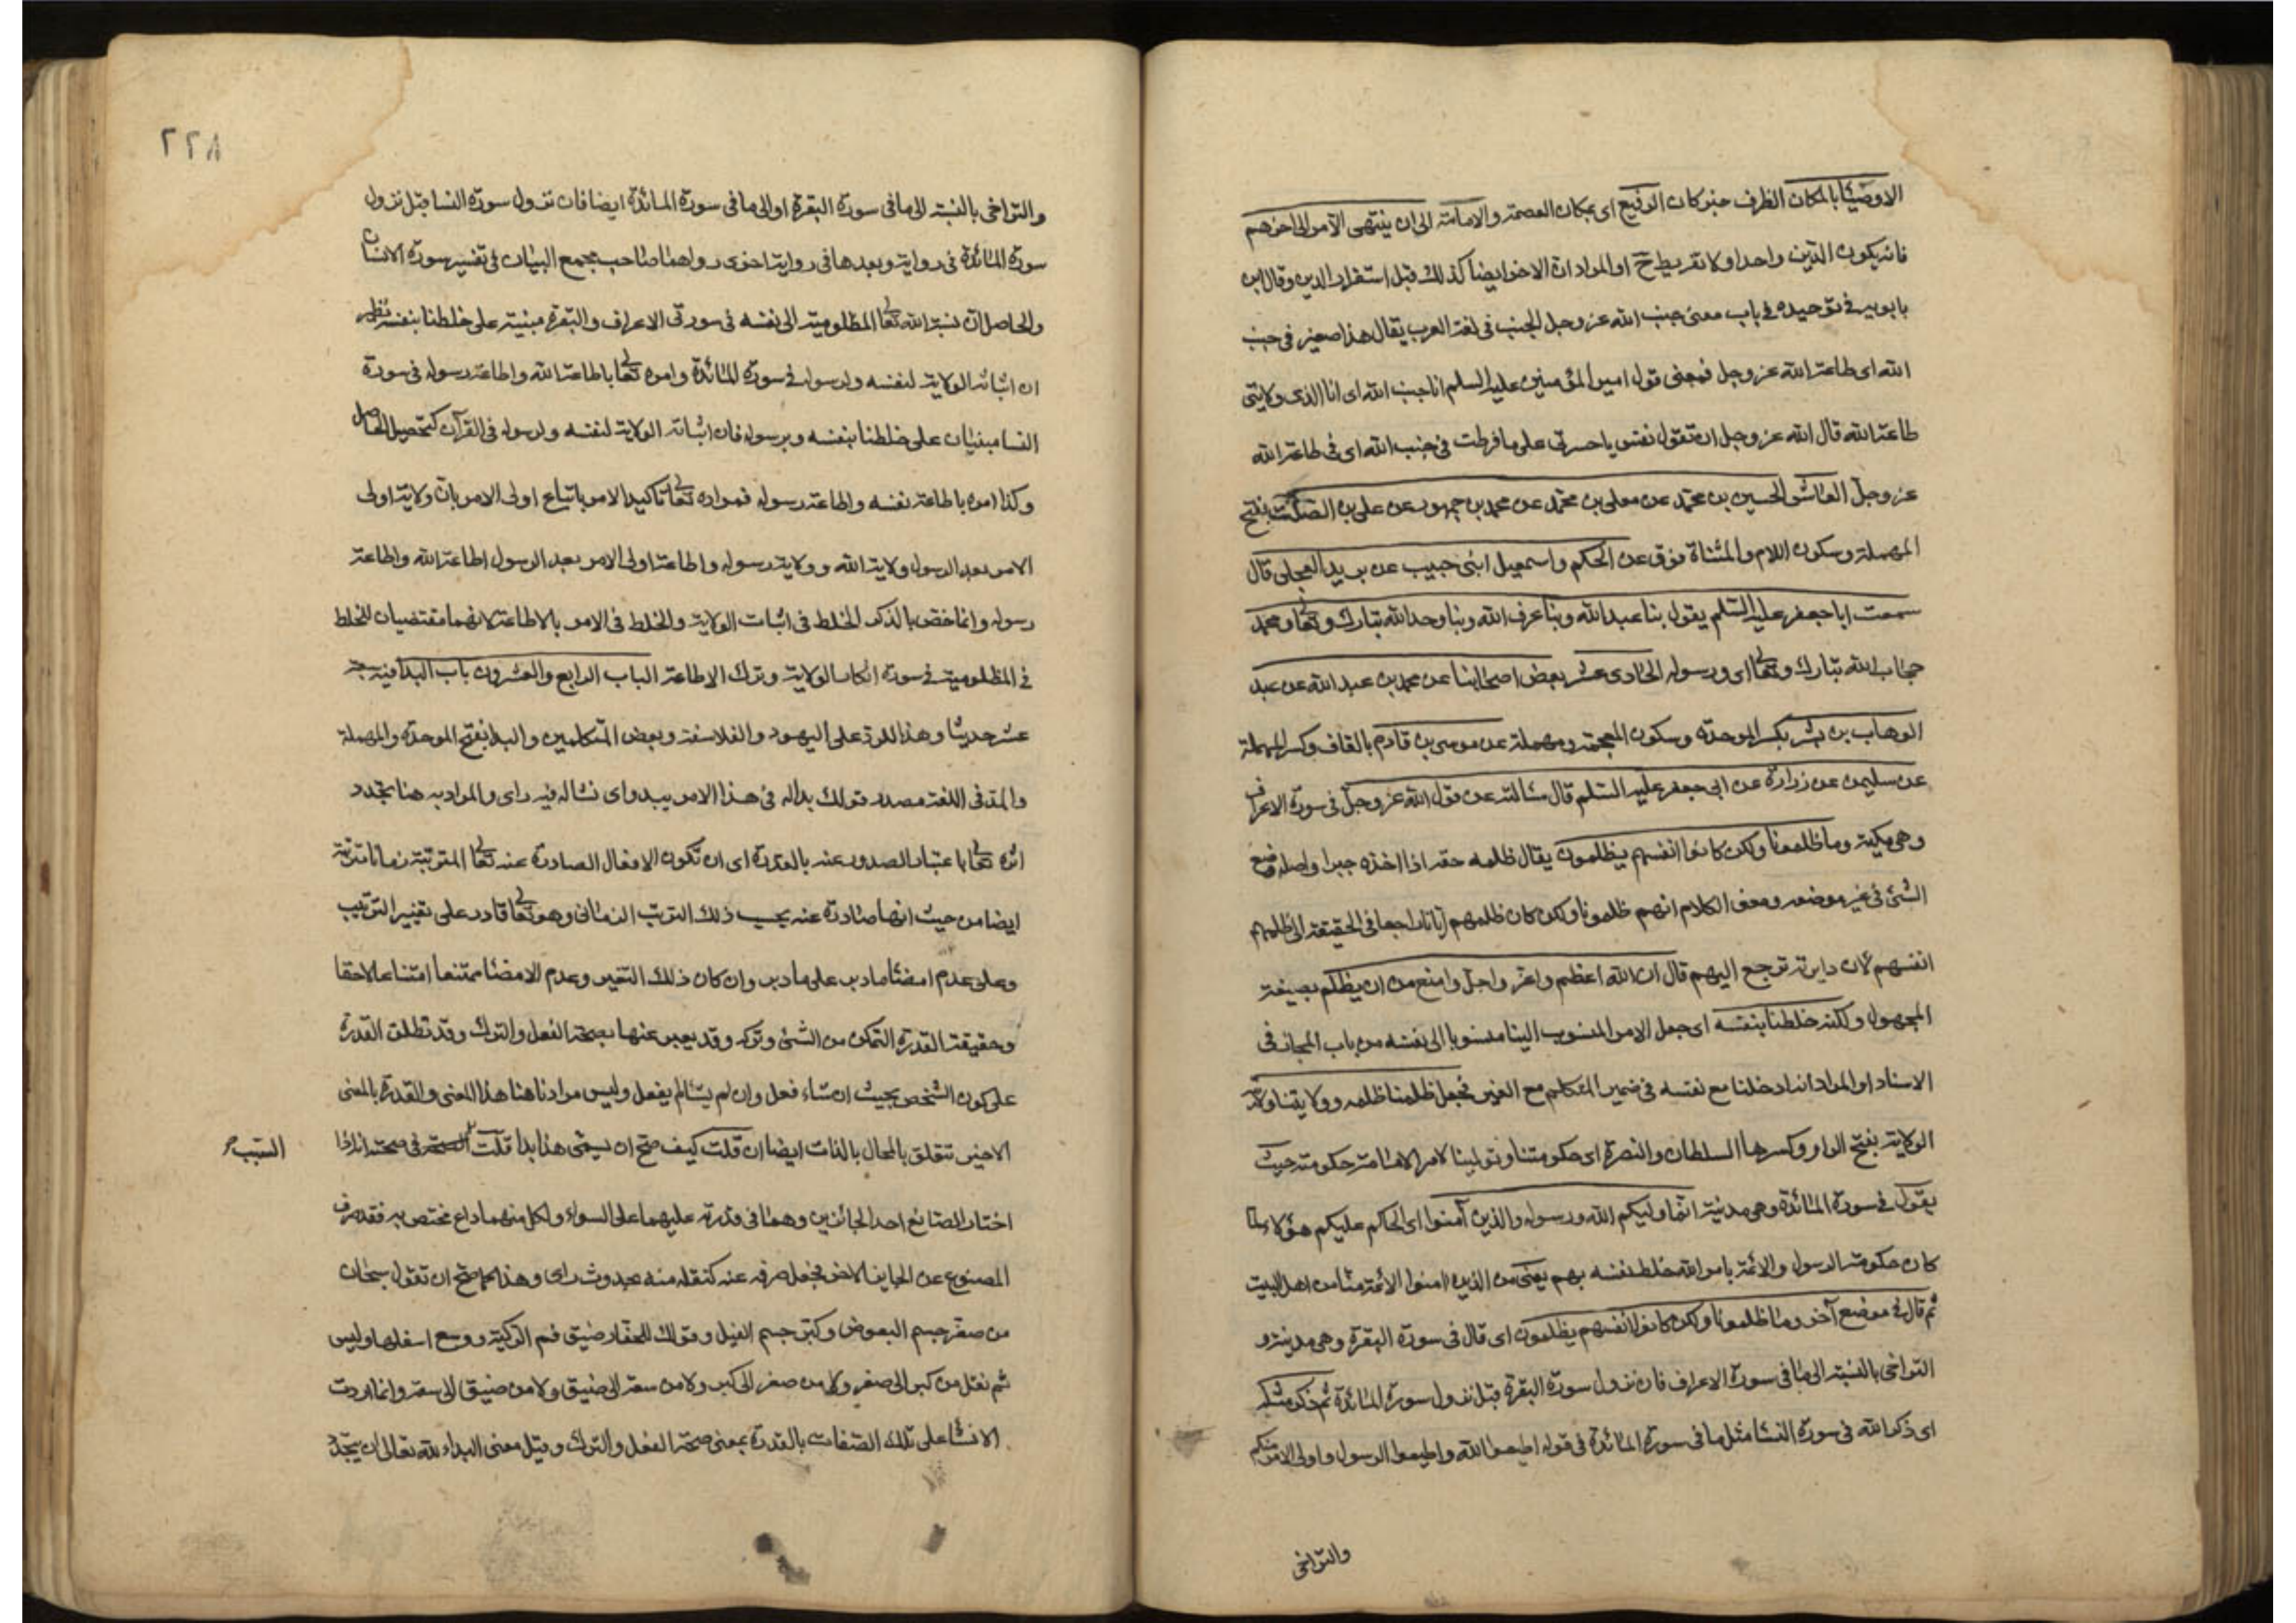 الاوصياء بالمكان الظرف خبر كان الرفيع اى بمكان العصمة والامامة الى ان ينتهى الآمر الى اخرهم
فانه يكون الدين واحدا ولا تفريط ح او المراد ان الاخر ايضا كذلك قبل استقرار الدين وقال ابن
بابويه فى توحيده فى باب معنى جنب الله عز وجل الجنب فى لغة العرب يقال هذا صغير فى جنب
الله اى طاعة الله عز وجل فمعنى قول امير المؤمنين عليه السلم انا جنب الله اى انا الذى ولايتى
طاعة الله قال الله عز وجل ان تقول نفس يا حسرتى على ما فرطت فى جنب الله اى فى طاعة الله
عز وجل العاشر الحسين بن محمد عن معلى بن محمد عن محمد بن جمهور عن على بن الصلت بفتح
المهملة وسكون اللام والمثناة فوق عن الحكم واسمعيل ابنى حبيب عن بريد العجلى قال
سمعت ابا جعفر عليه السلم يقول بنا عبد الله وبنا عرف الله وبنا وحد الله تبارك وتعالى ومحمد
حجاب الله تبارك وتعالى اى ورسوله الحادى عشر بعض اصحابنا عن محمد بن عبد الله عن عبد
الوهاب بن بشر بكسر الموحدة وسكون المعجمة ومهملة عن موسى بن قادم بالقاف وكسر المهملة
عن سليمن عن زرارة عن ابى جعفر عليه السلم قال سالته عن قول الله عز وجل فى سورة الاعراف
وهى مكية وما ظلمونا ولكن كانوا انفسهم يظلمون يقال ظلمه حقه اذا اخذه جبرا واصله وضع
الشئ فى غير موضعه ومعنى الكلام انهم ظلمونا ولكن كان ظلمهم ايانا راجعا فى الحقيقة الى ظلمهم
انفسهم لان دايرته ترجع اليهم قال ان الله اعظم واعز واجل وامنع من ان يظلم بصيغة
المجهول ولكنه خلطنا بنفسه اى جعل الامر المنسوب الينا منسوبا الى نفسه من باب المجاز فى
الاسناد او المراد انه ادخلنا مع نفسه فى ضمير المتكلم مع الغير فجعل ظلمنا ظلمه وولايتنا ولايته
الولاية بفتح الواو وكسرها السلطان والنصرة اى حكومتنا وتولينا لامر الامامة حكومته حيث
يقول فى سورة المائدة وهى مدنية انما وليكم الله ورسوله والذين آمنوا اى الحاكم عليكم هؤلاء لما
كان حكومة الرسول والائمة بامر الله خلط نفسه بهم يعنى من الذين امنوا الائمة منا من اهل البيت
ثم قال فى موضع آخر وما ظلمونا ولكن كانوا انفسهم يظلمون اى قال فى سورة البقرة وهى مدينة و
التراخى بالنسبة الى ما فى سورة الاعراف فان نزول سورة البقرة قبل نزول سورة المائدة ثم ذكر مثله
اى ذكر الله فى سورة النسا مثل ما فى سورة المائدة فى قوله اطيعوا الله واطيعوا الرسول واولى الامر منكم
والتراخى
٢٢٨
والتراخى بالنسبة الى ما فى سورة البقرة او الى ما فى سورة المائدة ايضا فان نزول سورة النسا قبل نزول
سورة المائدة فى رواية وبعدها فى رواية اخرى رواهما صاحب مجمع البيان فى تفسير سورة الانسان
والحاصل ان نسبة الله تعالى المظلومية الى نفسه فى سورتى الاعراف والبقرة مبنية على خلطنا بنفسه نظير
ان اثباته الولاية لنفسه ولرسوله فى سورة المائدة وامره تعالى باطاعة الله واطاعة رسوله فى سورة
النسا مبنيان على خلطنا بنفسه وبرسوله فان اثباته الولاية لنفسه ولرسوله فى القرآن كتحصيل الحاصل
وكذا امره باطاعة نفسه واطاعة رسوله فمراده تعالى تاكيد الامر باتباع اولى الامر بان ولاية اولى
الامر بعد الرسول ولاية الله وولاية رسوله واطاعة اولى الامر بعد الرسول اطاعة الله واطاعة
رسوله وانما خص بالذكر الخلط فى اثبات الولاية والخلط فى الامر بالاطاعة لانهما مقتضيان للخلط
فى المظلومية فى سورة انكار الولاية وترك الاطاعة الباب الرابع والعشرون باب البدا فيه ستة
عشر حديثا وهذا للرد على اليهود والفلاسفة وبعض المتكلمين والبدا بفتح الموحدة والمهملة
والمد فى اللغة مصدر قولك بدا له فى هذا الامر يبدو اى نشا له فيه راى والمراد به هنا تجدد
اثره تعالى باعتبار الصدور عنه بالقدرة اى ان تكون الافعال الصادرة عنه تعالى المترتبة زمانا مترتبة
ايضا من حيث انها صادرة عنه بحسب ذلك الترتب الزمانى وهو تعالى قادر على تغيير الترتيب
وعلى عدم امضاء ما دبر على ما دبر وان كان ذلك التغير وعدم الامضاء ممتنعا امتناعا لاحقا
وحقيقة القدرة التمكن من الشئ وتركه وقد يعبر عنها بصحة الفعل والترك وقد تطلق القدرة
على كون الشخص بحيث ان شاء فعل وان لم يشا لم يفعل وليس مرادنا هنا هذا المعنى والقدرة بالمعنى
الاخير تتعلق بالمحال بالذات ايضا ان قلت كيف صح ان يسمى هذا بدا قلت فى صحته انه اذا
السبب
اختار الصانع احد الجائزين وهما فى قدرته عليهما على السواء ولكل منهما داع مختص به فقد صرف
المصنوع عن الجايز الاخر فجعل صرفه عنه كنقله منه بحدوث راى وهذا كما صح ان تقول سبحان
من صغر جسم البعوض وكبر جسم الفيل وقولك للحفار ضيق فم الركية ووسع اسفلها وليس
ثم نقل من كبر الى صغر ولا من صغر الى كبر ولا من سعة الى ضيق ولا من ضيق الى سعة وانما اردت
الانشا على تلك الصفات بالقدرة بمعنى صحة الفعل والترك وقيل معنى البداء لله تعالى ان يتجدد